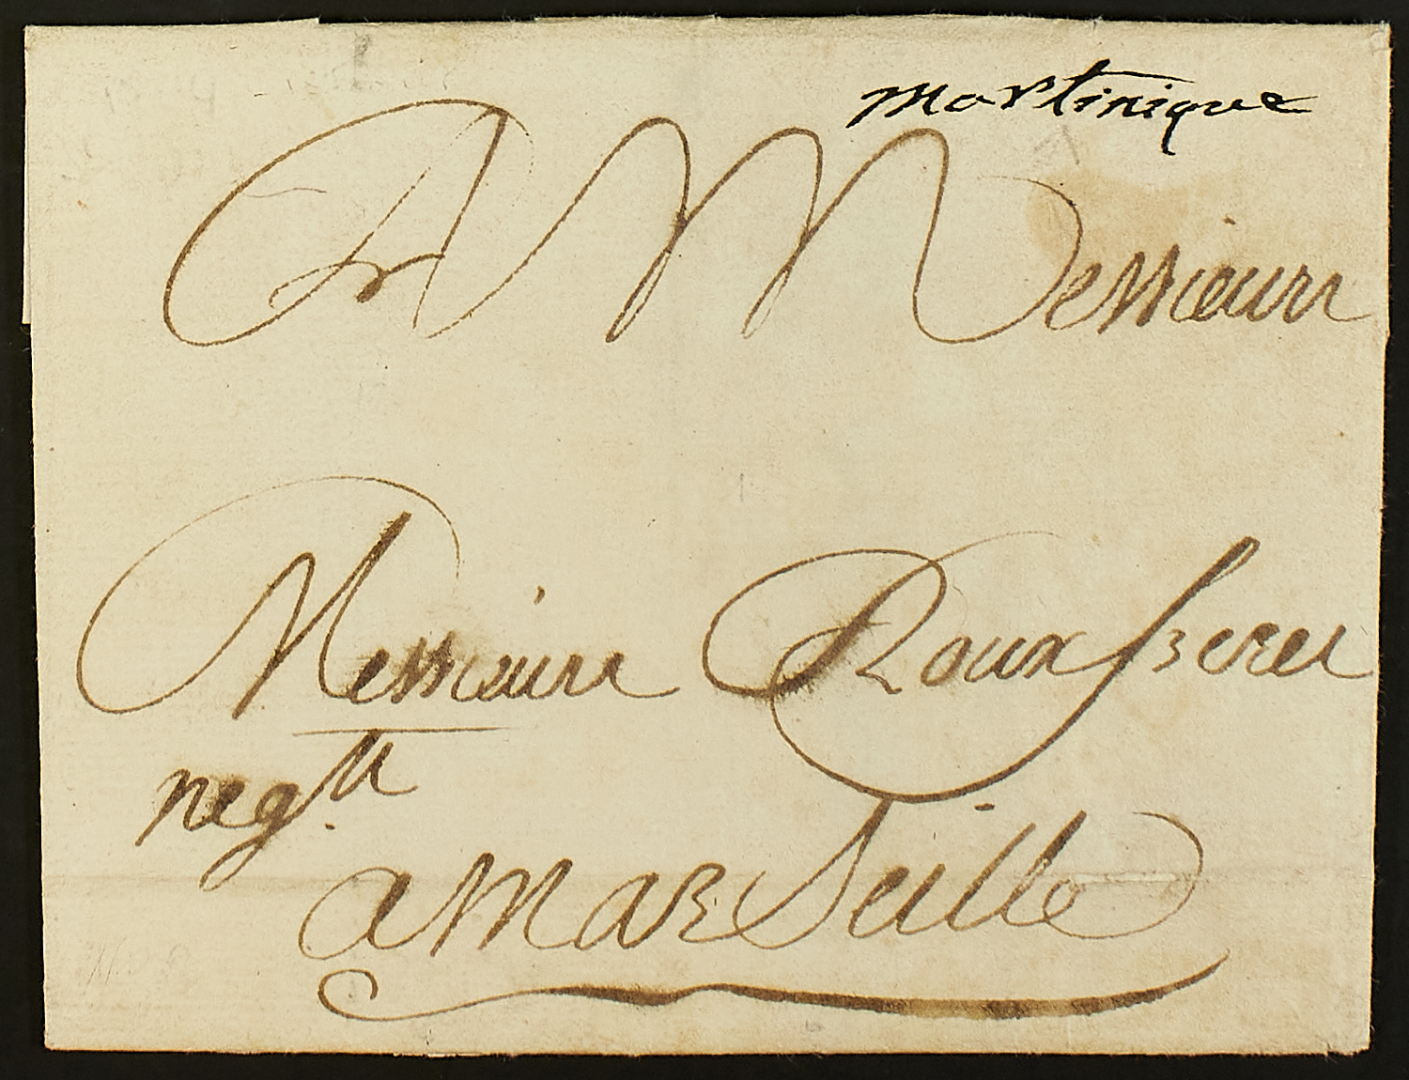 Martinique
A Messieurs
Messieurs Roux freres
neg.ts
a Marseille